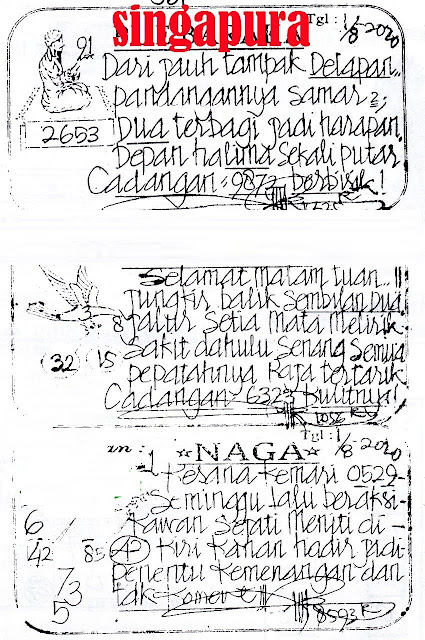 singapura
Tgl: 1/8-2020
21
Dari jauh tampak Delapan..
pandangannya samar2,
2653
Dua terbagi jadi harapan.
Depan halima sekali putar
Cadangan: 9873 berbisik!
Selamat Malam tuan..!!
Jungkir balik Sembilan Dua
8 Jalur Setia Mata Melirik
32 15 Sakit dahulu Senang Semua
pepatahnya Raja tertarik
Cadangan 6323 Kulitnya!
Tgl: 1/8-2020
☆NAGA☆
Kesana Kemari 0529-
Seminggu lalu beraksi-
6/ Kawan Sejati Meniti di-
42 85 Kiri Kanan hadir jadi-
73 penentu Kemenangan dan
5 tak
8593